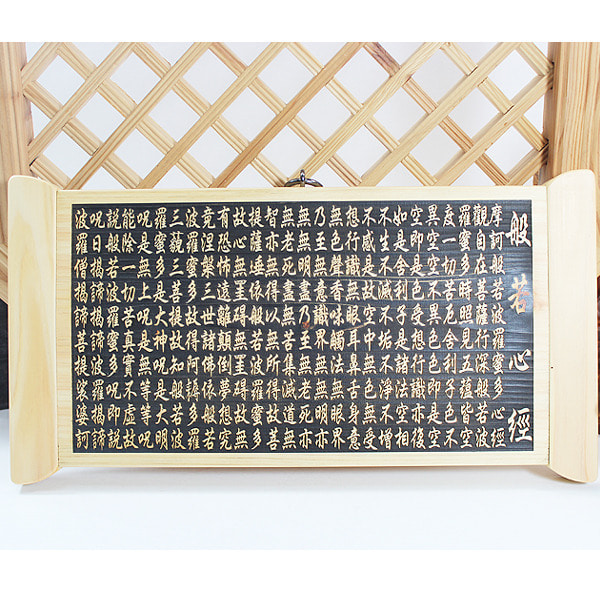 般若心經
摩訶般若波羅蜜多心經
觀自在菩薩行深般若波
羅蜜多時照見五蘊皆空
度一切苦厄舍利子色不
異空空不異色色即是空
空即是色受想行識亦復
如是舍利子是諸法空相
不生不滅不垢不淨不增
不減是故空中無色無受
想行識無眼耳鼻舌身意
無色聲香味觸法無眼界
乃至無意識界無無明亦
無無明盡乃至無老死亦
無老死盡無苦集滅道無
智亦無得以無所得故菩
提薩埵依般若波羅蜜多
故心無罣碍無罣碍故無
有恐怖遠離顛倒夢想究
竟涅槃三世諸佛依般若
波羅蜜多故得阿耨多羅
三藐三菩提故知般若波
羅蜜多是大神呪是大明
呪是無上呪是無等等呪
能除一切苦真實不虛故
說般若波羅蜜多呪即說
呪曰揭諦揭諦波羅揭諦
波羅僧揭諦菩提裟婆訶